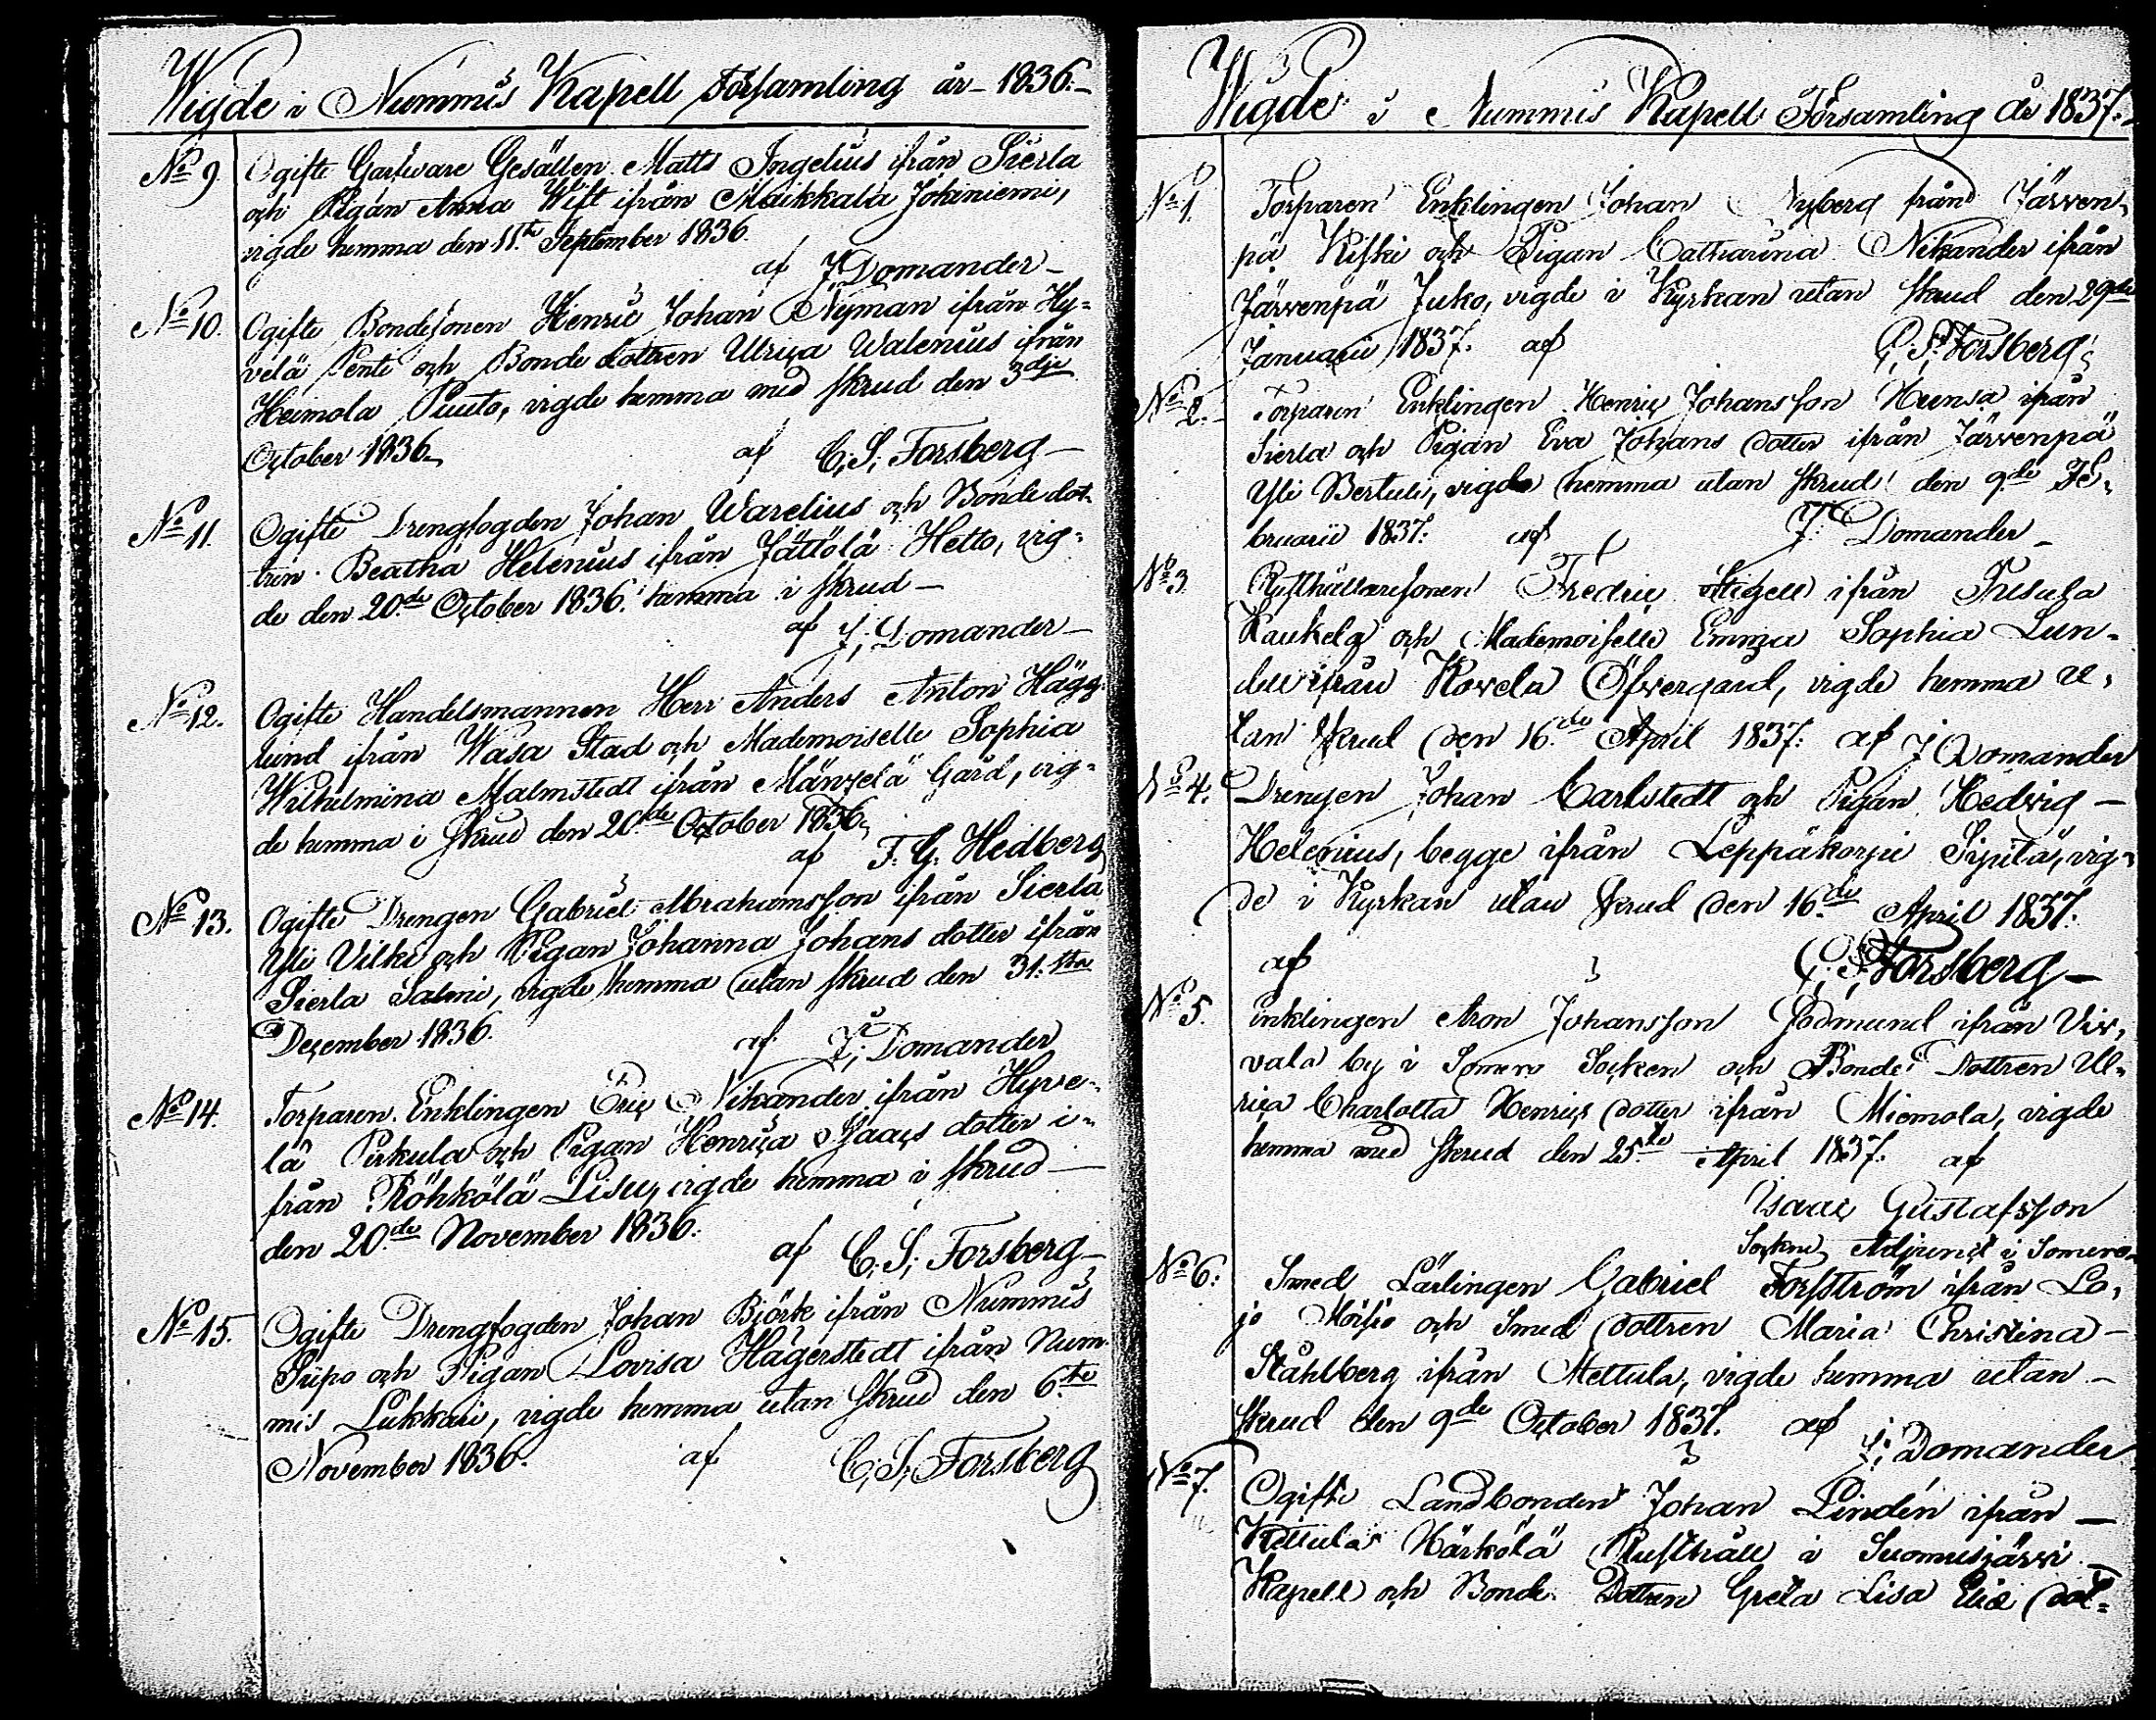 Wigde i Nummis Kapell Församling år 1836.
No 9. Ogifte Garfware Gesällen Matts Ingelius ifrån Sierla
och Pigan Anna Wift ifrån Maikkala Jokiniemi,
vigde hemma den 11te September 1836.
af J. Domander
No 10. Ogifte Bondesonen Henric Johan Nyman ifrån Hy=
velä Pente och Bonde dottren Ulrica Walenius ifrån
Heimola Puuto, vigde hemma med skrud den 3dje
October 1836. af C. S. Forsberg
No 11. Ogifte Drengfogden Johan Warelius och Bonde dot=
tren Beatha Helenius ifrån Jättölä Hetto, vig=
de den 20de October 1836. hemma i skrud
af J. Domander
No 12. Ogifte Handelsmannen Herr Anders Anton Hägg=
lund ifrån Wasa Stad och Mademoiselle Sophia
Wilhelmina Malmstedt ifrån Gård, vig=
de hemma i skrud den 20de October 1836.
af F. G. Hedberg
No 13. Ogifte Drengen Gabriel Abrahamsson ifrån Sierla
Yli Vilki och Pigan Johanna Johans dotter ifrån
Sierla Salmi, vigde hemma utan skrud den 31:sta
December 1836. af J. Domander
No 14. Torparen Enklingen Eric Nikander ifrån Hyve=
lä Pirkula och Pigan Henrica Isaacs dotter i=
från Röhkölä Lisu, vigde hemma i skrud
den 20de November 1836. af C. S. Forsberg
No 15. Ogifte Drengfogden Johan Björk ifrån Nummis
Pripo och Pigan Lovisa Hägerstedt ifrån Num=
mis Lukkari, vigde hemma utan skrud den 6te
November 1836. af C. S. Forsberg
Wigde i Nummis Kapell Församling år 1837.
No 1. Torparen Enklingen Johan Nyberg från Järven=
pä Kiski och Pigan Catharina Nikander ifrån
Järvenpä Juko, vigde i Kyrkan utan skrud den 29de
Januarii 1837. af C. S. Forsberg
No 2. Torparen Enklingen Henric Johansson Hunsa ifrån
Sierla och Pigan Eva Johans dotter ifrån Järvenpä
Yli Bertula, vigde hemma utan skrud den 9de Fe=
bruarii 1837. af J. Domander
No 3 Rusthållaresonen Fredric Stigell ifrån Pusula
Kaukela och Mademoiselle Emma Sophia Lun=
dell ifrån Kovela Öfvergård, vigde hemma u=
tan skrud den 16de April 1837. af J Domander
No 4. Drengen Johan Carlstedt och Pigan Hedvig
Helenius, begge ifrån Leppäkorpi Sipilä, vig=
de i Kyrkan utan skrud den 16de April 1837.
af C. S. Forsberg
No 5. Enklingen Aron Johansson Södmund ifrån Vir=
vala by i Somero Socken och Bonde Dottren Ul=
rica Charlotta Henrics dotter ifrån Miemola, vigde
hemma med skrud den 25te April 1837. af
Isaac Gustafsson
Sockne Adjunct i Somero
No 6: Smed Lärlingen Gabriel Forsström ifrån Lo=
jo Moisio och Smed dottren Maria Christina
Ståhlberg ifrån Mettula, vigde hemma utan
skrud den 9de October 1837. af J. Domander
No 7. Ogifte Landbonden Johan Lindén ifrån
Kettula Härkölä Rusthåll i Suomusjärvi
Kapell och Bonde Dottren Greta Lisa Eliæ dot=